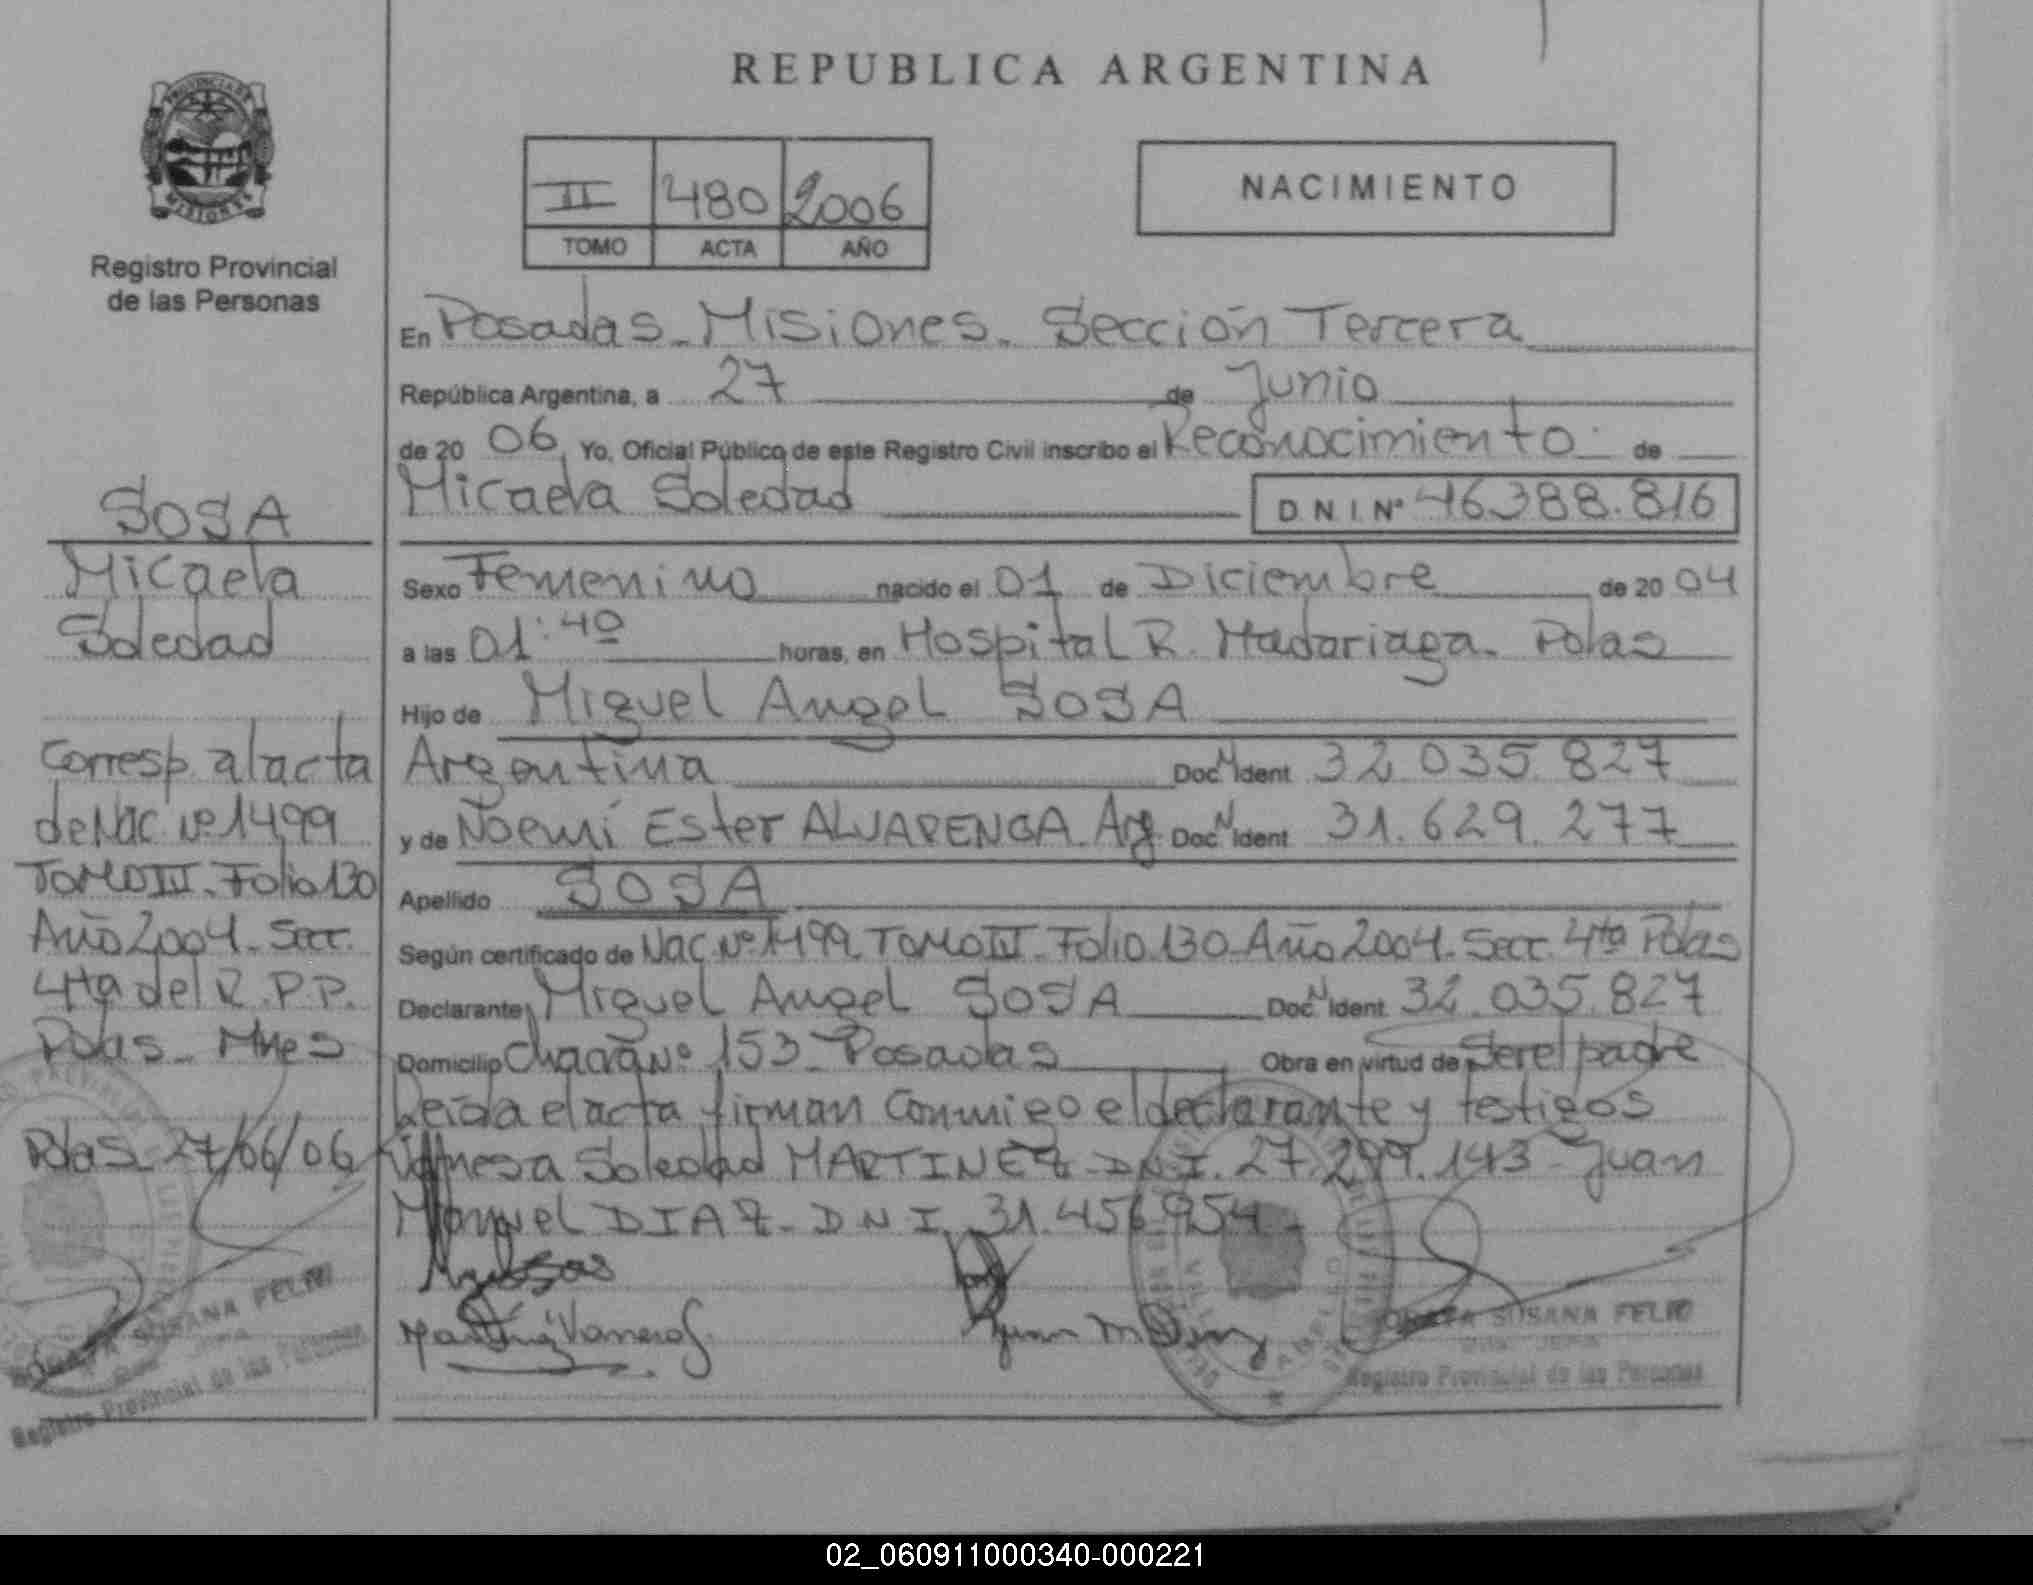 PROVINCIA DE
MISIONES
Registro Provincial
de las Personas
SOSA
Micaela
Soledad
Corresp. al acta
de Nac. Nº 1499
TOMO III - Folio 130
Año 2004 - Secc.
4ta del R.P.P.
Pdas - Mnes
Pdas - 27/06/06
SUSANA FELIU
Registro Provincial de las Personas
REPUBLICA ARGENTINA
II 480 2006
TOMO ACTA AÑO
NACIMIENTO
En Posadas - Misiones - Sección Tercera
República Argentina, a 27 de Junio
de 20 06 Yo, Oficial Público de este Registro Civil inscribo el Reconocimiento - de
Micaela Soledad D N I Nº 46388.816
Sexo Femenino nacido el 01 de Diciembre de 20 04
a las 01:40 horas, en Hospital R. Madariaga - Pdas
Hijo de Miguel Angel SOSA
Argentina Doc. N Ident 32.035.827
y de Noemí Ester ALVARENGA Arg. Doc. N Ident 31.629.277
Apellido SOSA
Según certificado de Nac. Nº 1499 TOMO III - Folio 130 - Año 2004 - Secc. 4ta Pdas
Declarante Miguel Angel SOSA Doc. N Ident 32.035.827
Domicilio Chacra Nº 153 - Posadas Obra en virtud de Ser el padre
Leída el acta firman Conmigo el declarante y testigos
Vanesa Soledad MARTINEZ - D.N.I. 27.299.143 - Juan
Manuel DIAZ - D N I 31.456.954 -
SUSANA FELIU
Registro Provincial de las Personas
02_060911000340-000221